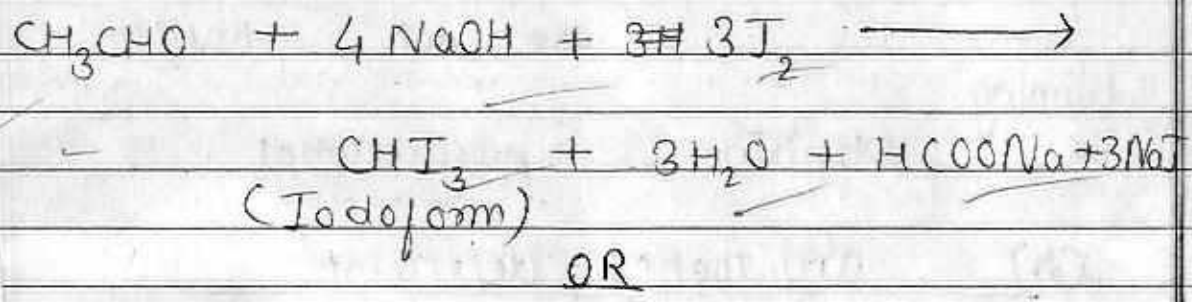 CH₃CHO + 4 NaOH + 3I₂ ⟶
- CHI₃ + 3H₂O + HCOONa + 3NaI
(Iodoform)
OR